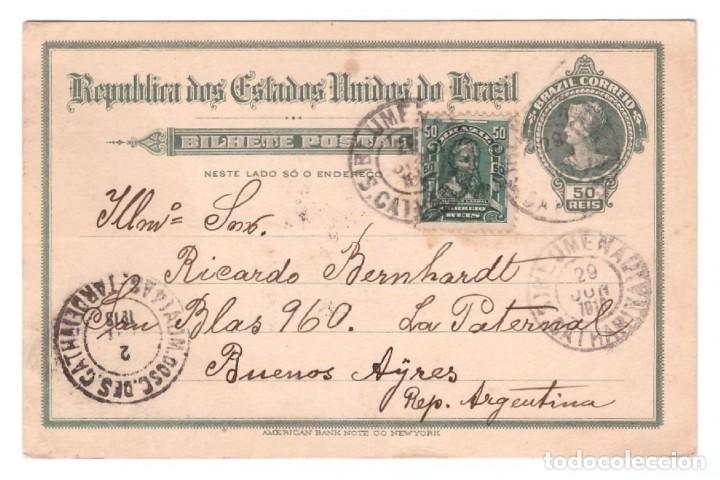 Republica dos Estados Unidos do Brazil
BRAZIL CORREIO
50
REIS
BILHETE POSTAL
NESTE LADO SÓ O ENDEREÇO
50 BRAZIL 50
CORREIO
REIS
BLUMENAU
S. CATH
Illmº Snr.
Ricardo Bernhardt
San Blas 960. La Paternal
Buenos Ayres
Rep. Argentina
BLUMENAU
29
JUN
191
CATHARINA
2
1918
DES. CATH
AMERICAN BANK NOTE CO NEW YORK
todocoleccion.net